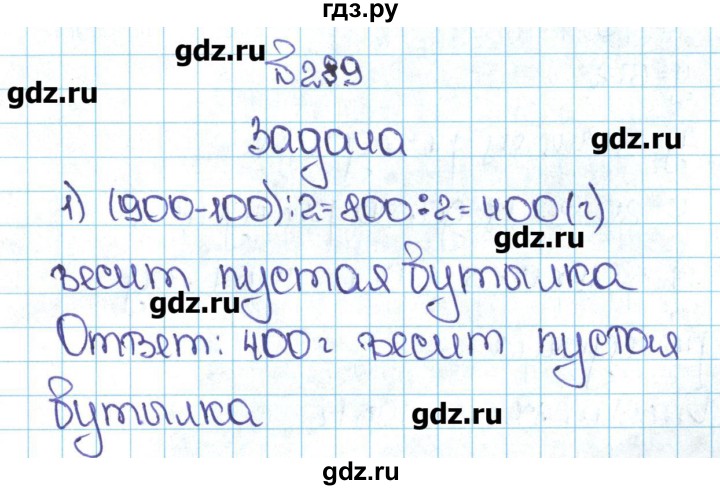 гдз.ру
gdz.ru
№ 239
gdz.ru
gdz.ru
Задача
1) (900-100):2=800:2=400(г)
gdz.ru
весит пустая бутылка
gdz.ru
Ответ: 400 г весит пустая
бутылка
gdz.ru
gdz.ru